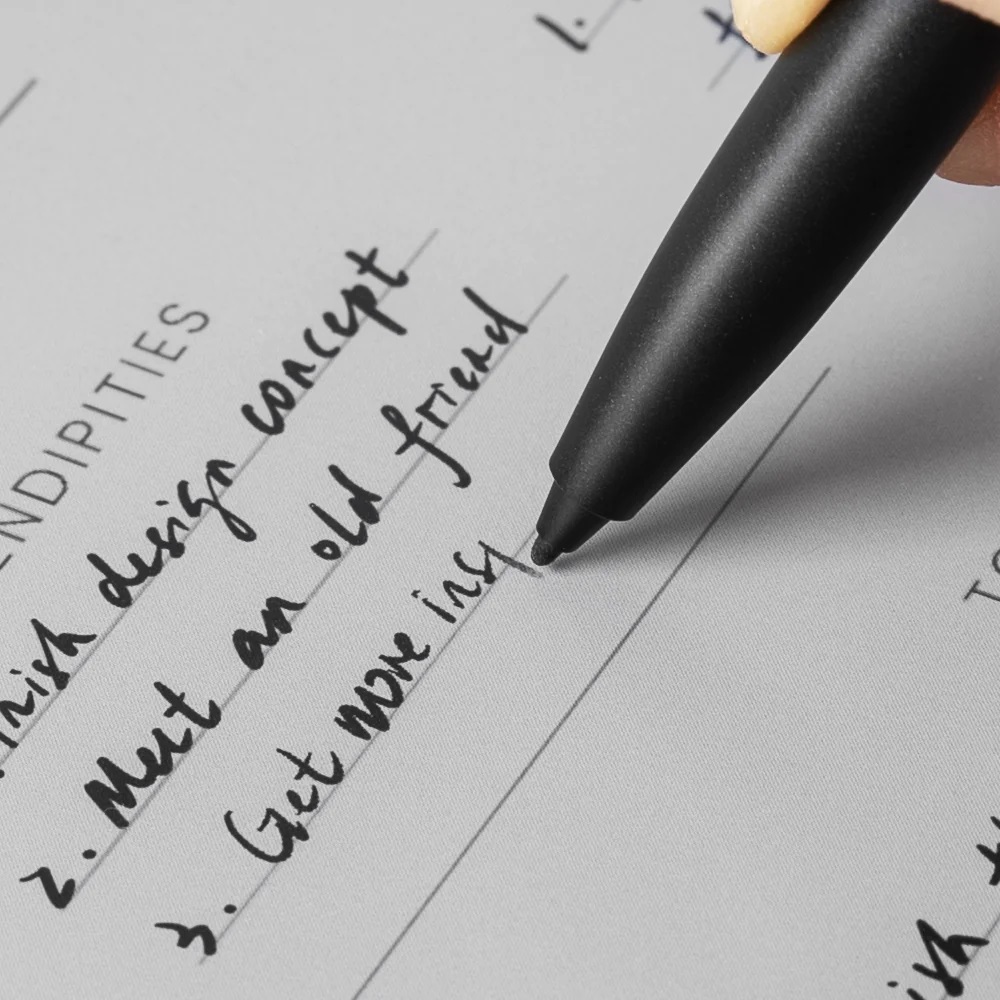 1.
ENDIPITIES
nish design concept
2. Meet an old friend
3. Get more ins
ish